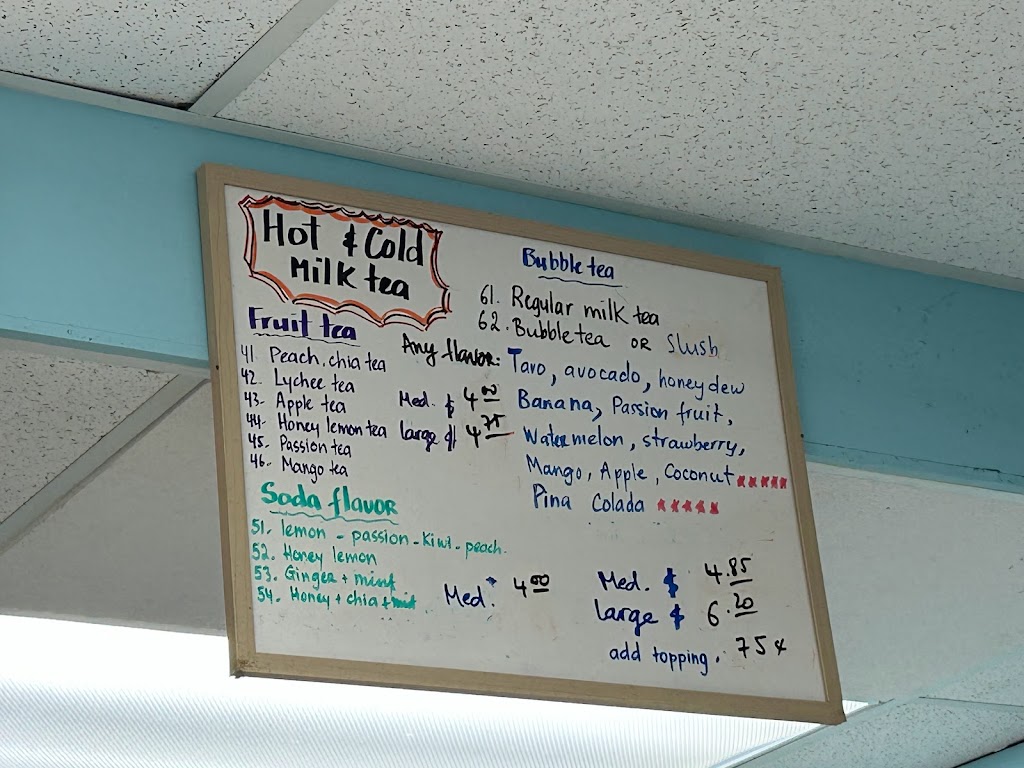 Hot & Cold
Milk tea
Fruit tea
41. Peach. chia tea
42. Lychee tea
43. Apple tea
44. Honey lemon tea
45. Passion tea
46. Mango tea
Med. $ 4.00
large $ 4.75
Soda flavor
51. lemon - passion - Kiwi - peach.
52. Honey lemon
53. Ginger + mint
54. Honey + chia + mint
Med. 4.00
Bubble tea
61. Regular milk tea
62. Bubble tea OR Slush
Any flavor: Taro, avocado, honeydew
Banana, Passion fruit,
Watermelon, strawberry,
Mango, Apple, Coconut
Pina Colada
Med. $ 4.85
large $ 6.20
add topping. 75¢